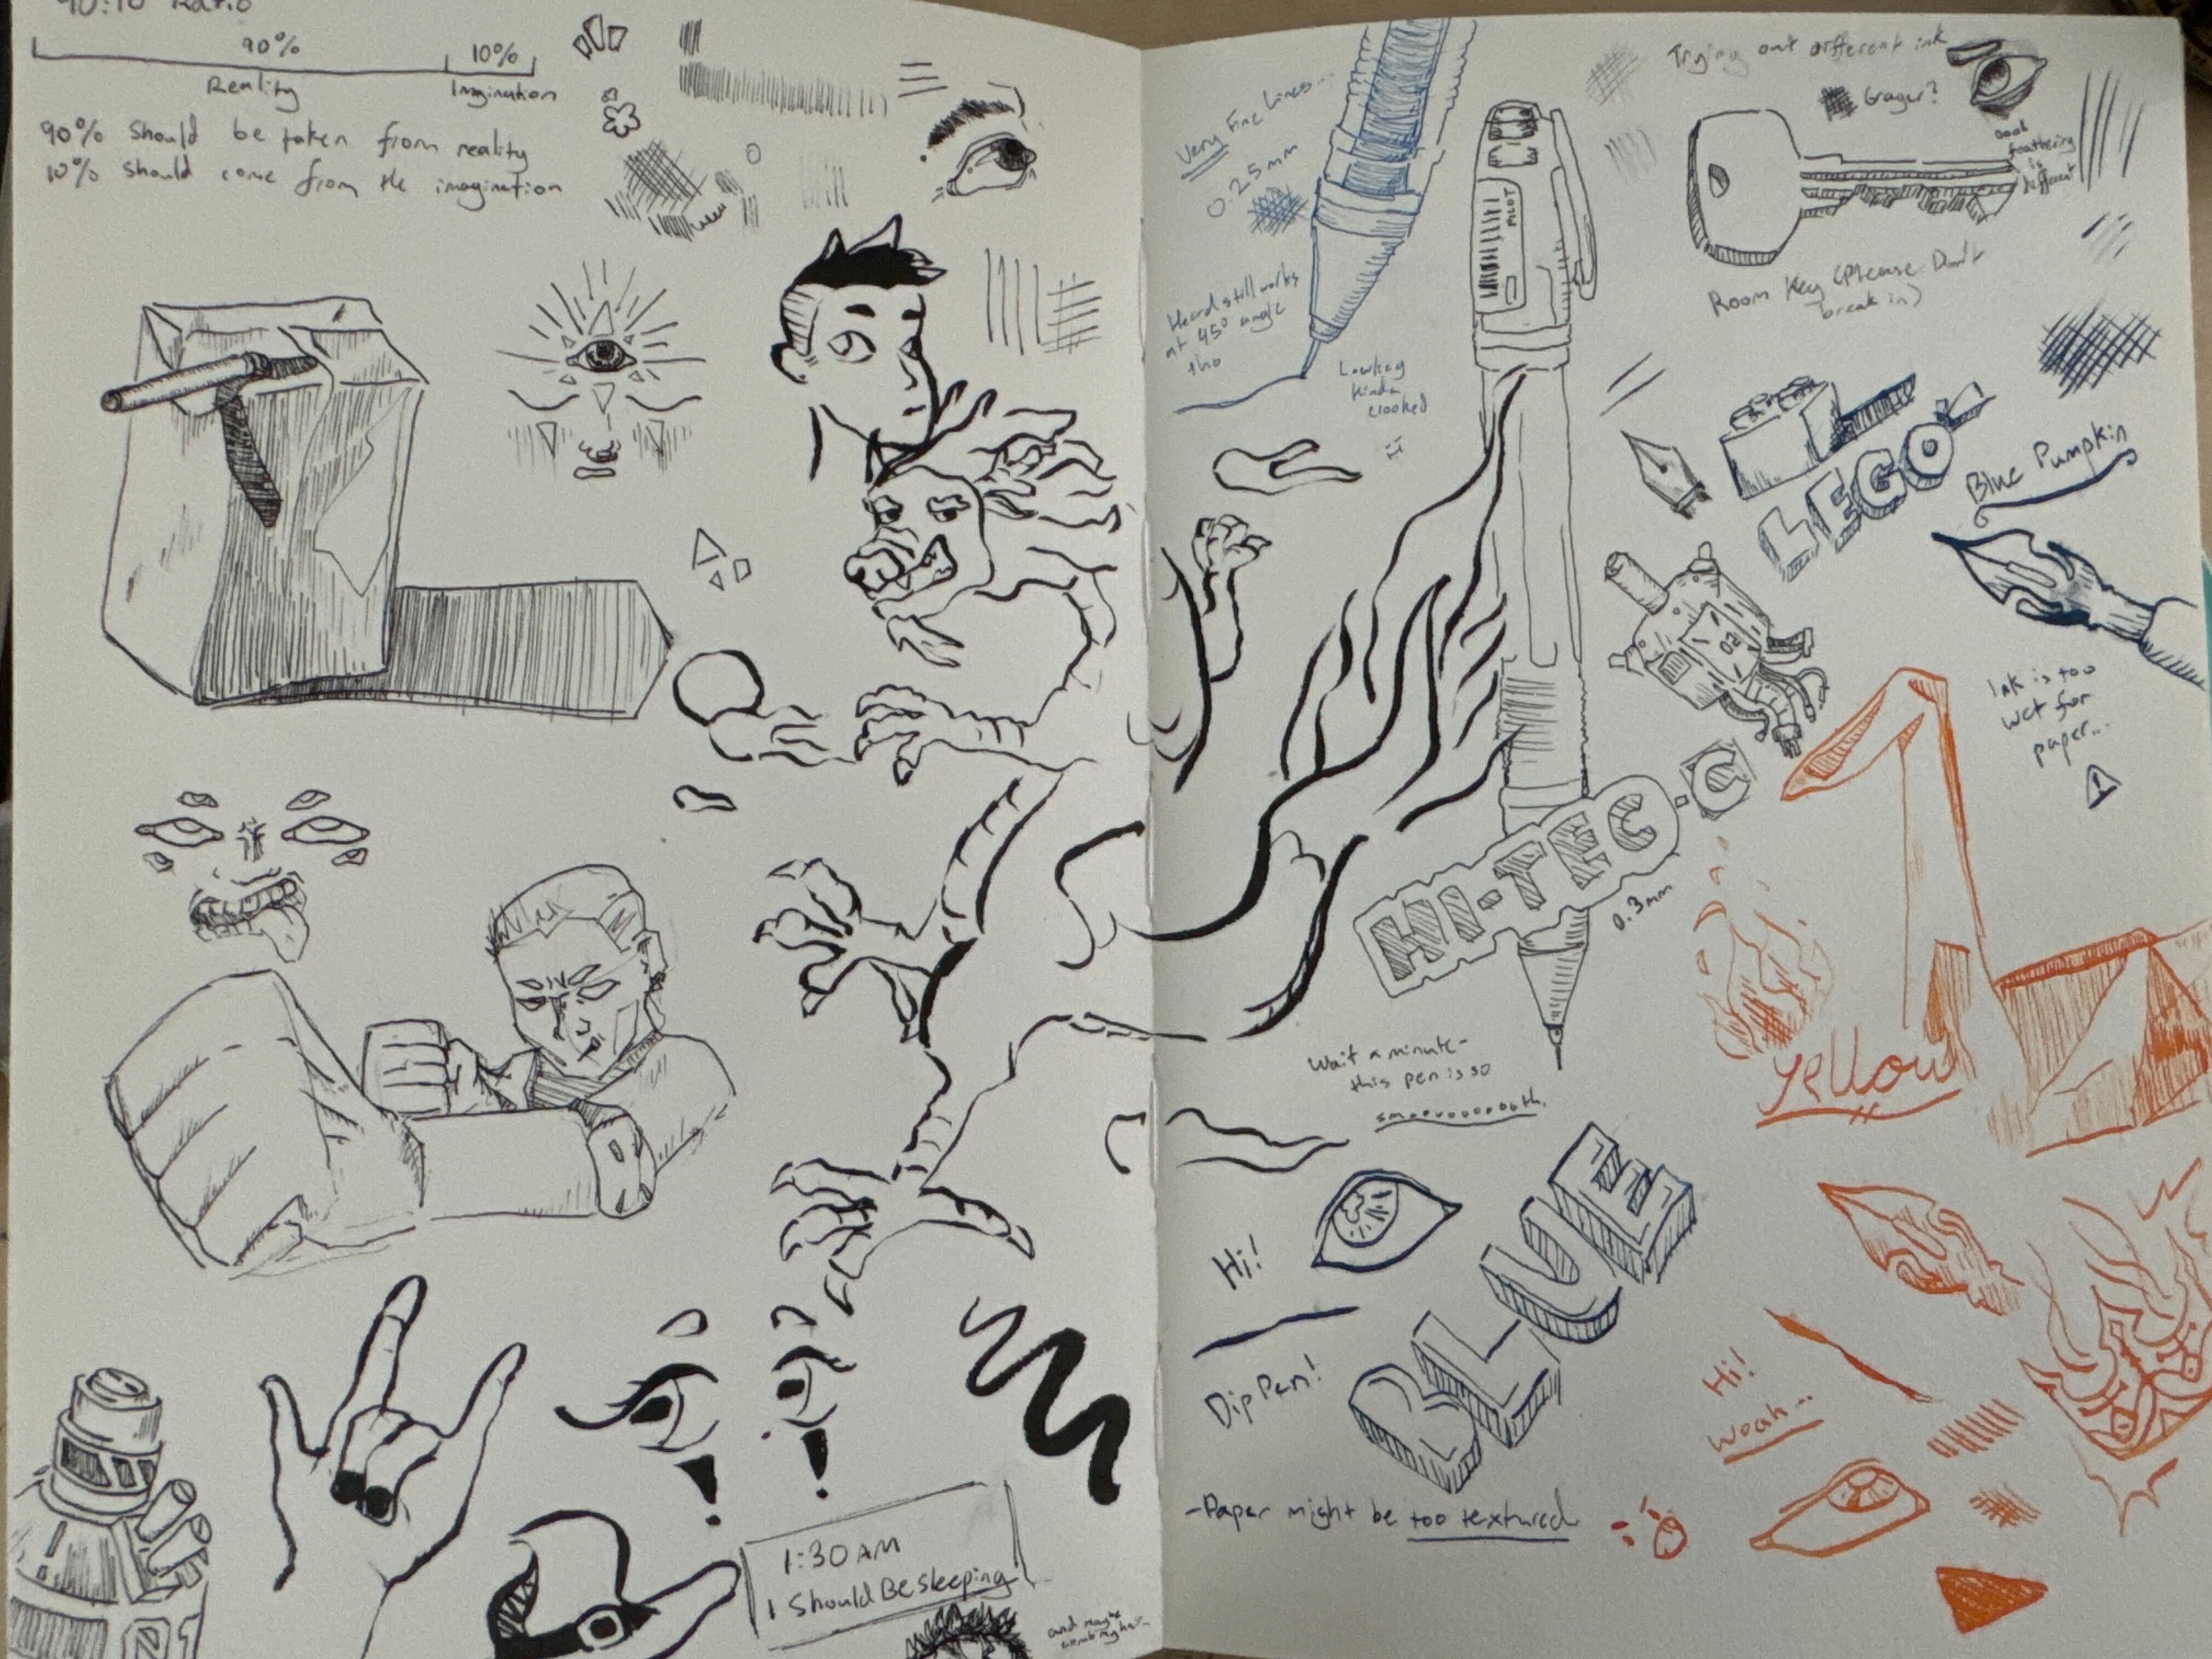 90:10 Ratio
90%
10%
Reality
Imgination
90% should be taken from reality
10% should come from the imagination
1:30 AM
I Should Be Sleeping
and maybe
combing hair...
01
Very Fine Lines...
0.25mm
Heard still works
at 45° angle
tho
Lowkey
kinda
crooked
PILOT
HI-TEC-C
0.3mm
Wait a minute-
this pen is so
Hi!
Dip Pen!
BLUE
-Paper might be too textured
Trying out different ink
Grayer?
feathering
is
different
Room Key (Please Don't
break in)
LEGO
Blue Pumpkin
02
Ink is too
wet for
paper...
Yellow
Hi!
Woah...